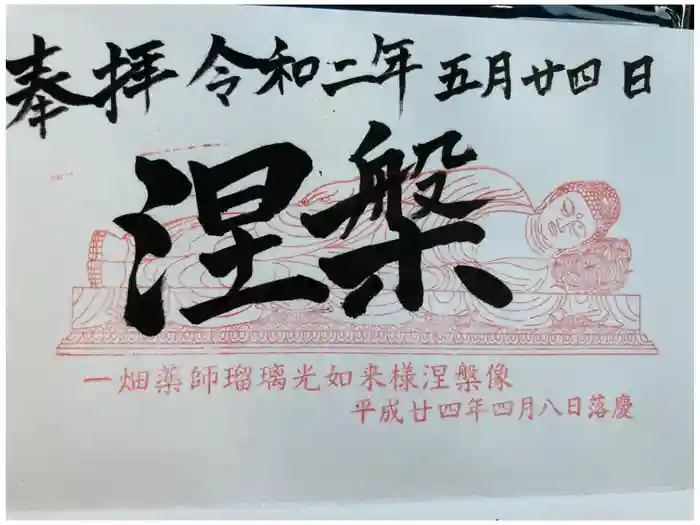 奉拝 令和二年 五月廿四日
涅槃
一畑薬師瑠璃光如来様涅槃像
平成廿四年四月八日落慶